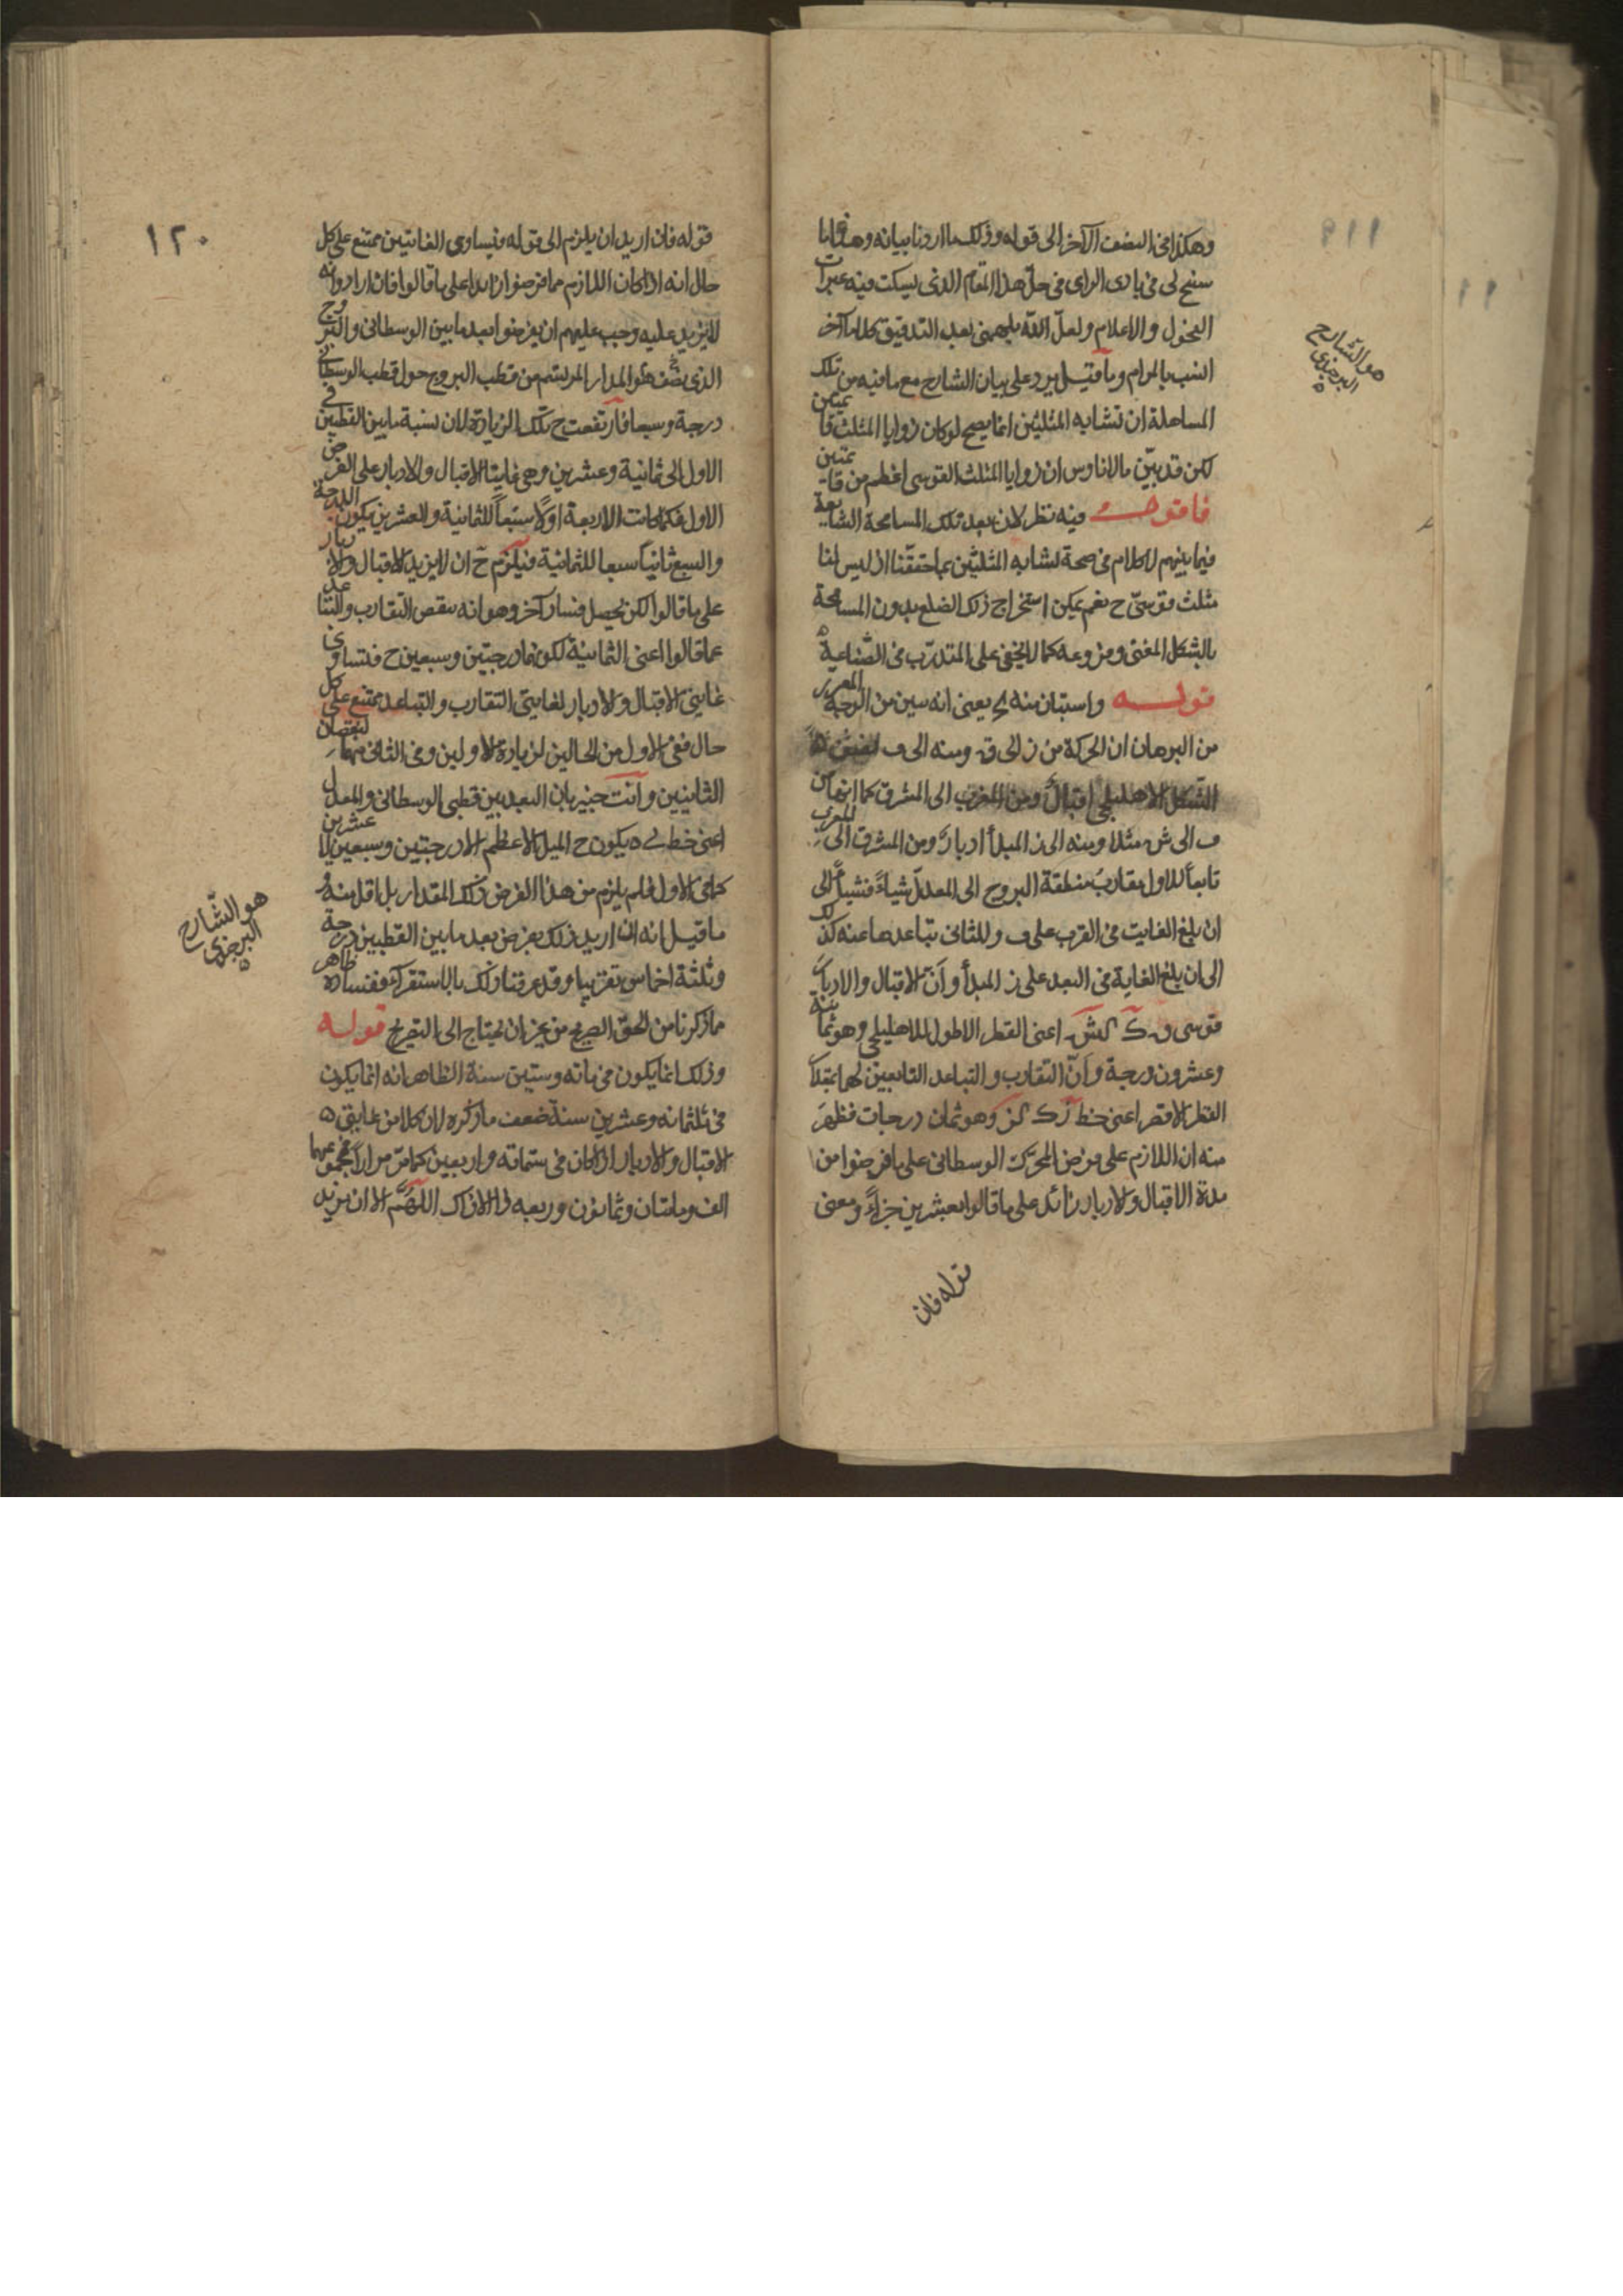 وهكذا في النصف الآخر الى قوله وذلك ما اردنا بيانه وهذا ما
سنح لى فى بادى الراى فى حل هذا المقام الذى يسكت فيه عبرات
الفحول والاعلام ولعل الله يلهمنى بعد التدقيق كلاما آخر
انسب بالمرام وما قيل يرد على بيان الشارح مع ما فيه من تلك
المساهلة ان تشابه المثلثين انما يصح لو كان زوايا المثلث قائمتين
لكن قد بين مالاناوس ان زوايا المثلث القوسى اعظم من قائمتين
فاقول فيه نظر لان بعد تلك المسامحة الشايعة
فيما بينهم لا كلام فى صحة تشابه المثلثين بما حققنا اذ ليس لنا
مثلث قوسى ح نعم يمكن استخراج ذلك الضلع بدون المسامحة
بالشكل المغنى وفروعه كما لا يخفى على المتدرب فى الصناعة
قوله واستبان منه الخ يعنى انه تبين من الوجه المحرر
من البرهان ان الحركة من ز الى ق ومنه الى ف نصف
الشكل الاهليلجى اقبال ومن المغرب الى المشرق كما انها من
ف الى ش مثلا ومنه الى ز المبدأ ادبار ومن المشرق الى المغرب
تابعا للاول يقارب منطقة البروج الى المعدل شيأ فشيأ الى
ان بلغ الغاية فى القرب على ف وللثانى تباعدها عنه كذلك
الى ان بلغ الغاية فى البعد على ز المبدأ وأن الاقبال والادبار
قوسى ق ك ك ش اعنى القطر الاطول للاهليلجى وهو ثمانية
وعشرون درجة وأن التقارب والتباعد التابعين لهما بمقدار
القطر الاقصر اعنى خط ز ك ك ف وهو ثمان درجات فظهر
منه ان اللازم على فرض المحرك الوسطانى على ما فرضوا من
مدة الاقبال والادبار زائد على ما قالوا بعشرين جزأ ومعنى
قوله فان
هو الشارح
البرجندى
١١٩
١٢٠
قوله فان اريد ان يلزم الى قوله فيساوى الغايتين ممتنع على كل
حال انه اذا كان اللازم مما فرضوا زائدا على ما قالوا فان ارادوا انه
لا يزيد عليه وجب عليهم ان يفرضوا بعد ما بين الوسطانى والبروج
الذى نصف قطر المدار المرتسم من قطب البروج حول قطب الوسطانى
درجة وسبعا فارتفعت ح تلك الزيادة لان نسبة ما بين القطبين فى
الاول الى ثمانية وعشرين وهى غايتا الاقبال والادبار على الفرض
الاول فكما كانت الاربعة اولا سبعا للثمانية والعشرين يكون الدرجة
والسبع ثانيا سبعا للثمانية فيلزم ح ان لا يزيد الاقبال والادبار
على ما قالوا لكن يحصل فساد آخر وهو انه ينقص التقارب والتباعد
عما قالوا اعنى الثمانية لكونهما درجتين وسبعين ح فتساوى
غايتى الاقبال والادبار لغايتى التقارب والتباعد ممتنع على كل
حال ففى الاول من الحالين لزيادة الاولين وفى الثانى منهما لنقصان
الثانيين وانت خبير بان البعد بين قطبى الوسطانى والمعدل
اعنى خط يكون ح الميل الاعظم الا درجتين وسبعين لا عشرين
كما فى الاول فلم يلزم من هذا الفرض ذلك المقدار بل اقل منه و
ما قيل انه ان اريد ذلك يفرض بعد ما بين القطبين درجة
وثلثة اخماس تقريبا وقد عرفنا ذلك بالاستقراء ففساده ظاهر
مما ذكرنا من الحق الصريح من غير ان يحتاج الى التصريح قوله
وذلك انما يكون فى مائه وستين سنة الظاهر انه انما يكون
فى ثلثمائه وعشرين سنة ضعف ما ذكره لان كلا من غايتى
الاقبال والادبار اذا كان فى ستمائه واربعين كما مر مرارا فمجموعهما
الف ومائتان وثمانون وربعه ذا لا ذاك اللهم الا ان يزيد
هو الشارح
البرجندى